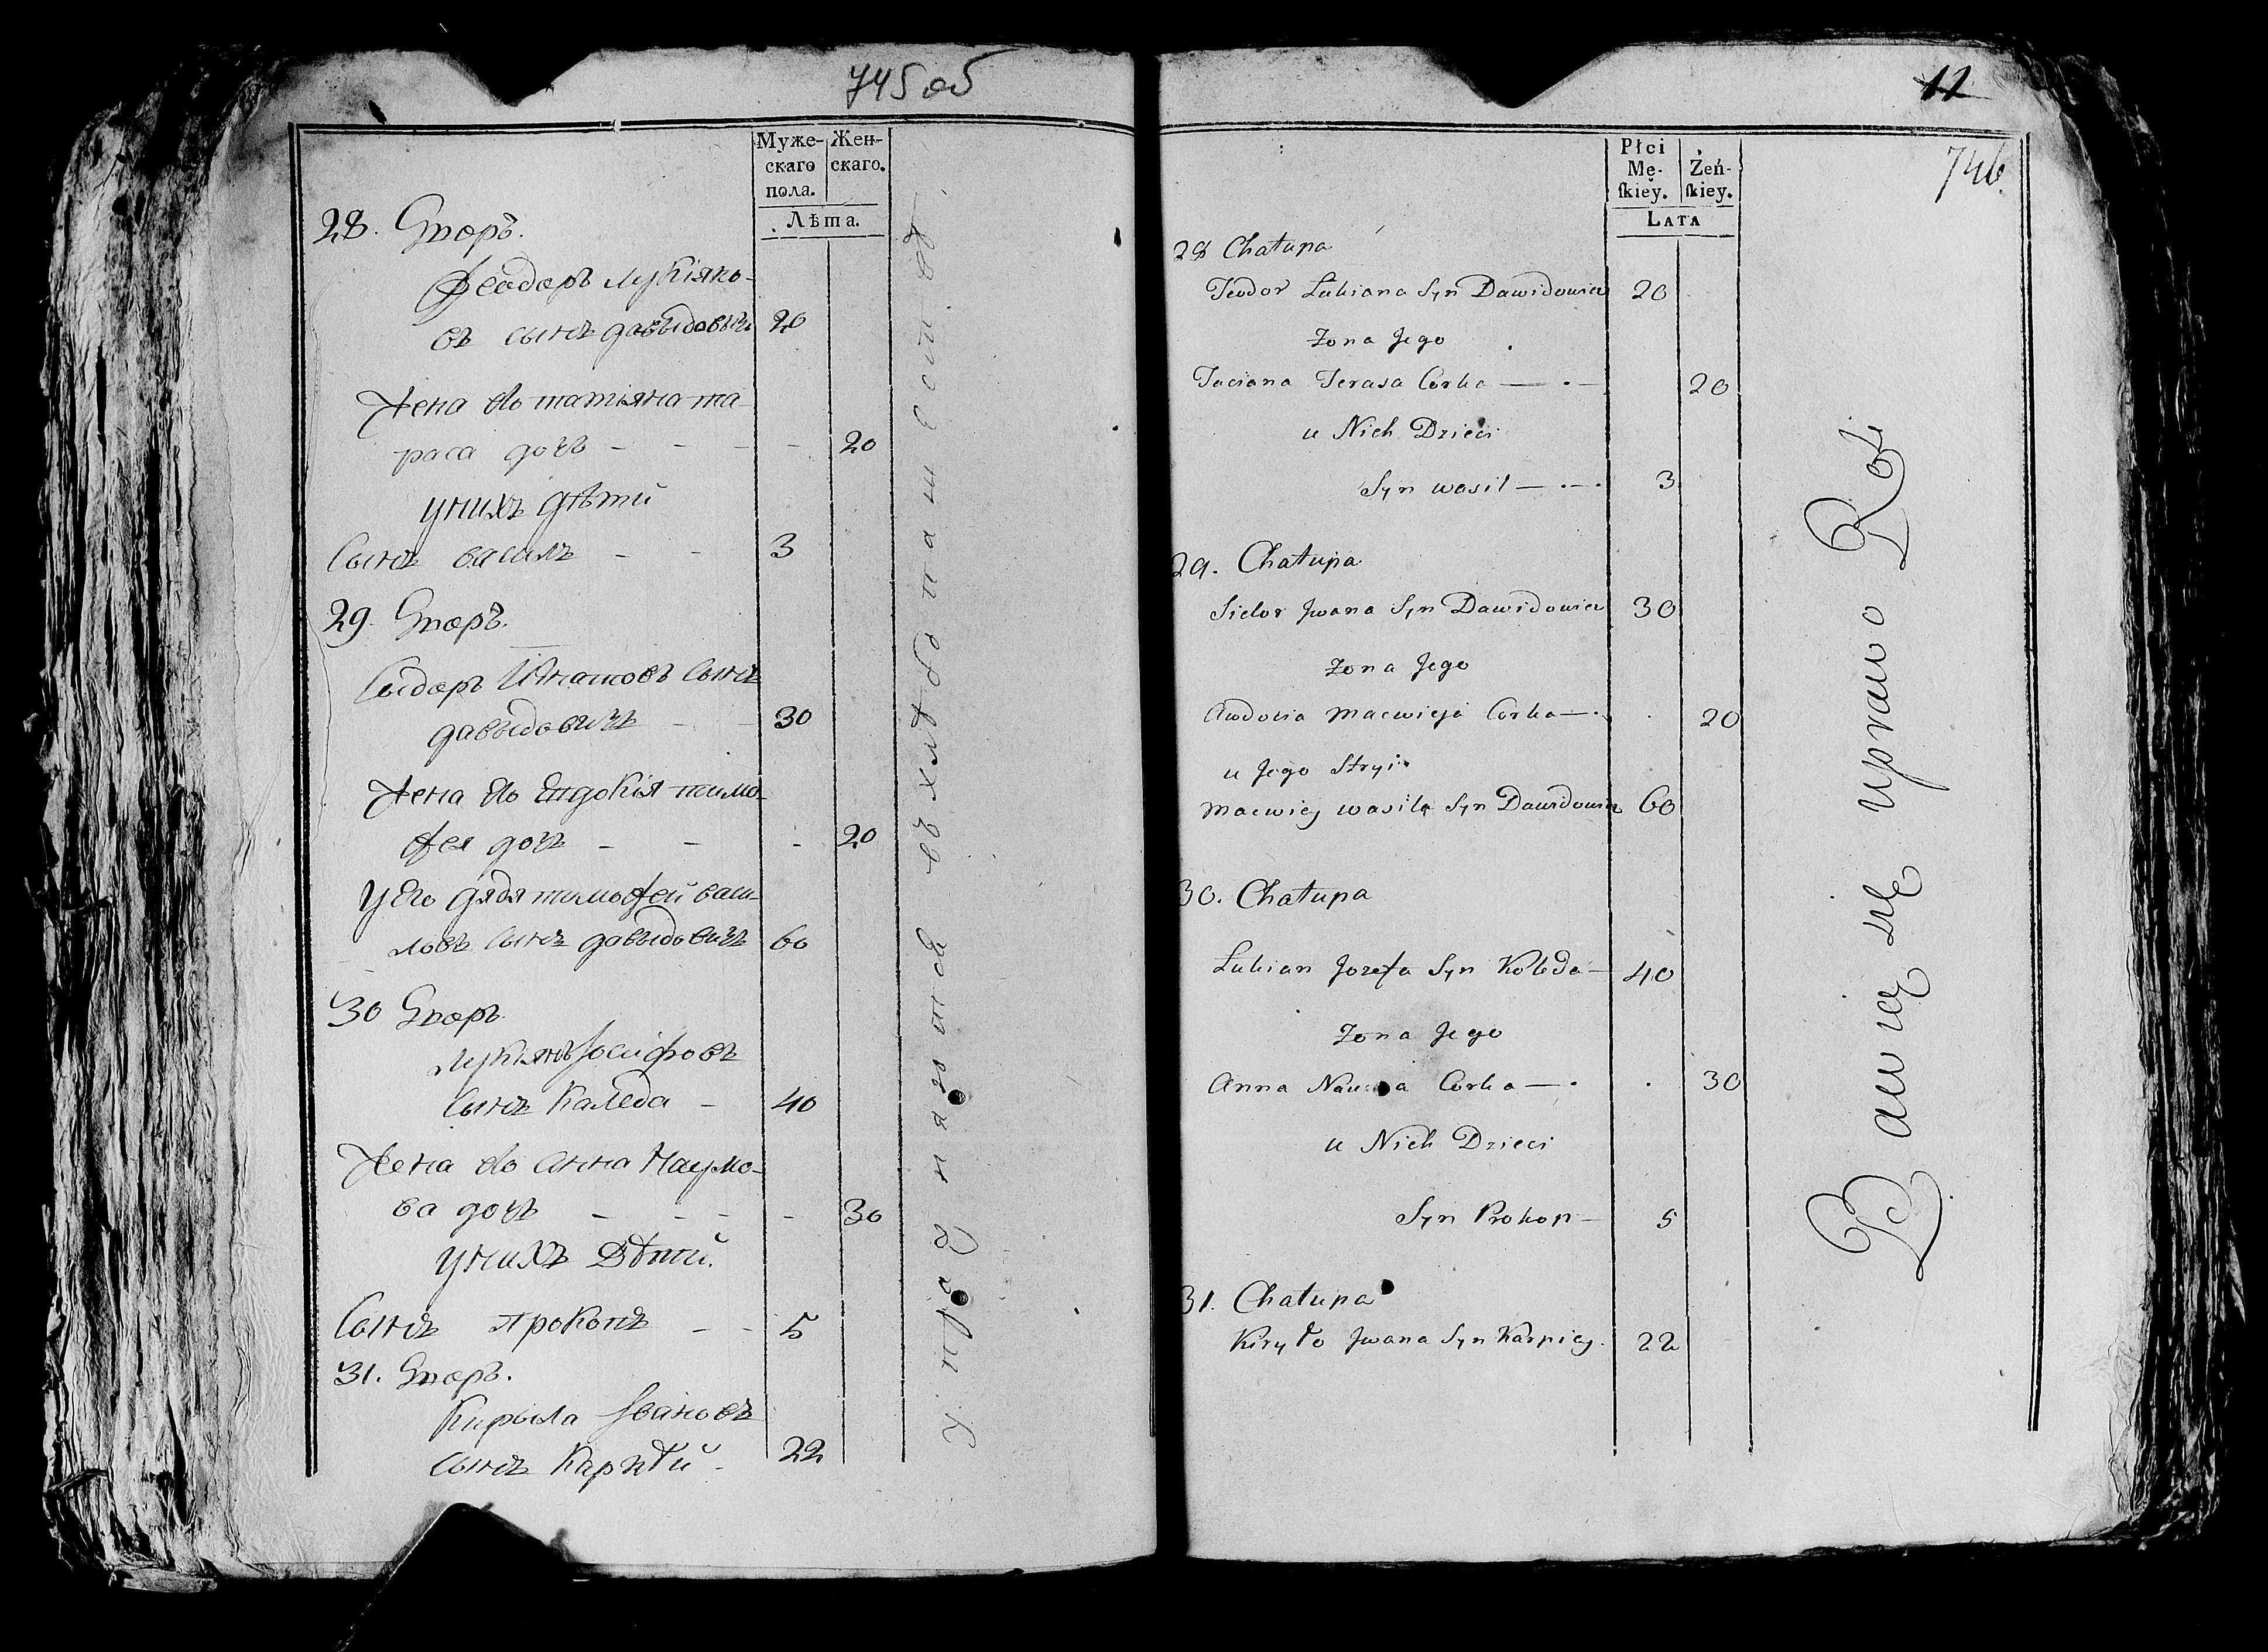 745 об
Муже-
скаго
пола.
Жен-
скаго.
Лѣта.
28. Дворъ.
Феодоръ Лукіяно-
въ сынъ давыдовичь 20
Жена его татіяна та-
раса дочь - - - - 20
у нихъ дѣти
Сынъ василь - - 3
29. Дворъ.
Сыдоръ Ивановъ Сынъ
давыдовичь - - 30
Жена Его Евдокія тимо-
фея дочь - - - 20
у Его дядя тимофей васи-
ловъ Сынъ давыдовичь 60
30 Дворъ
Лукіянъ Іосифовъ
Сынъ Каледа - 40
Жена его Анна Наумо-
ва дочь - - - - 30
у нихъ Дѣти.
Сынъ Прокопъ - - 5
31. Дворъ.
Кирыла Івановъ
Сынъ Карпѣй - 22
Упражняются въ хлѣбопашествѣ.
11
746.
Płci
Mę-
skiey.
Żeń-
skiey.
LATA
28 Chałupa
Teodor Lukiana Syn Dawidowicz 20
Żona Jego
Taciana Terasa Corka — 20
u Nich Dzieci
Syn wasil — 3
29. Chałupa
Sidor Jwana Syn Dawidowicz 30
Żona Jego
Awdocia Macwieja Corka — 20
u Jego Stryi
Macwiey wasila Syn Dawidowicz 60
30. Chałupa
Lukian Jozefa Syn Koleda — 40
Żona Jego
Anna Corka — 30
u Nich Dzieci
Syn Prokop — 5
31. Chałupa
Kiryło Jwana Syn Karpiey. 22
Bawią się uprawo Roli